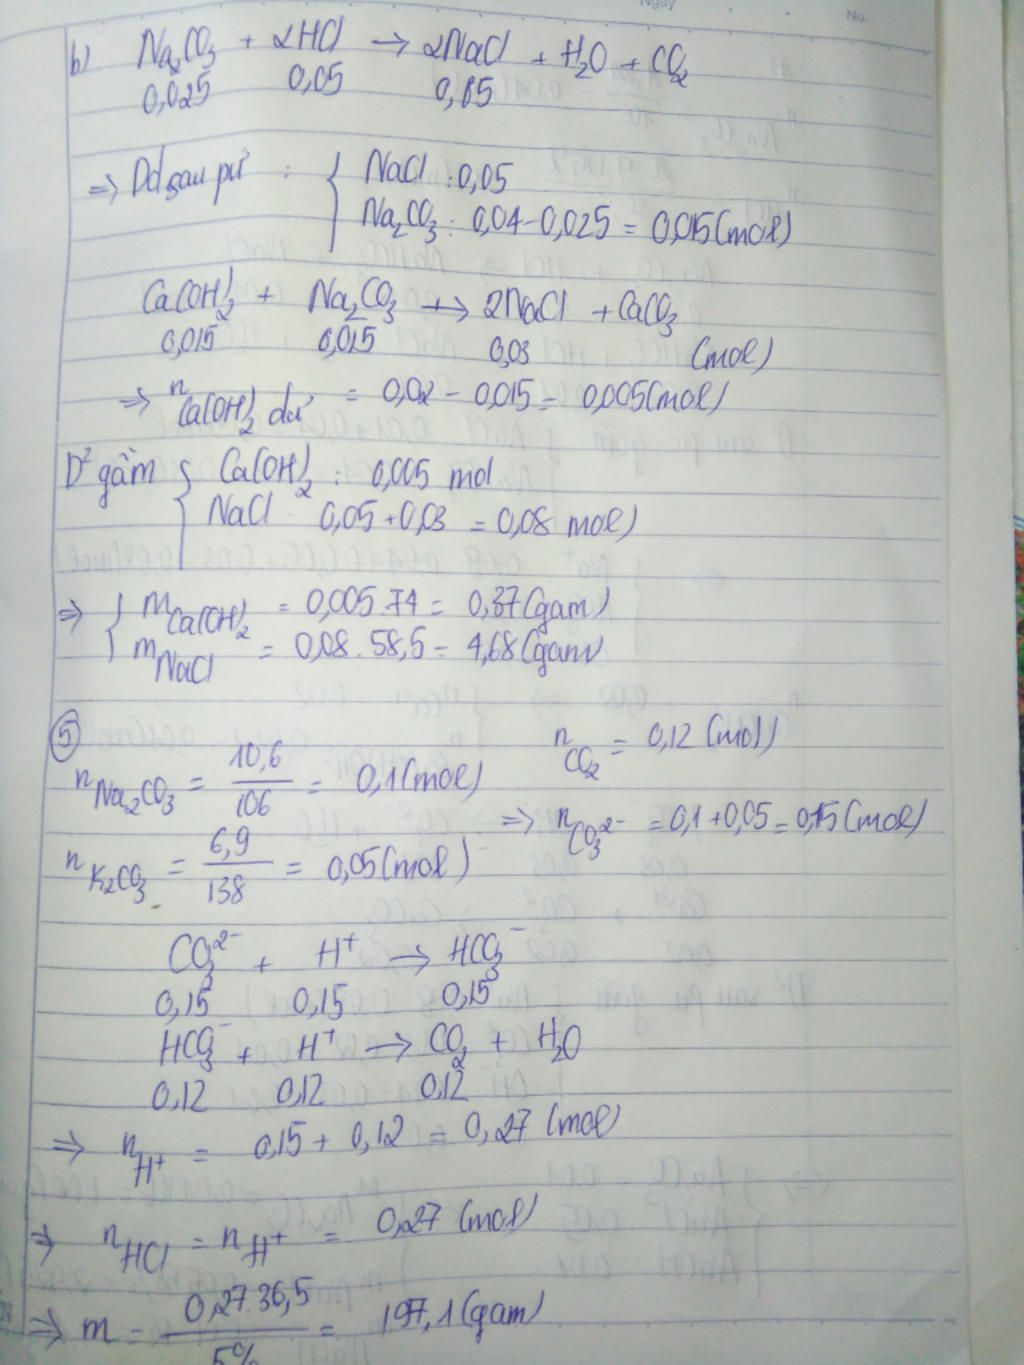 Ngày
No.
b) Na₂CO₃ + 2HCl → 2NaCl + H₂O + CO₂
0,025 0,05 0,05
=> Dd sau pứ : { NaCl : 0,05
Na₂CO₃ : 0,04 - 0,025 = 0,015 (mol)
Ca(OH)₂ + Na₂CO₃ → 2NaCl + CaCO₃
0,015 0,015 0,03 (mol)
=> n Ca(OH)₂ dư = 0,02 - 0,015 = 0,005 (mol)
D² gồm { Ca(OH)₂ : 0,005 mol
NaCl 0,05 + 0,03 = 0,08 mol)
=> { m Ca(OH)₂ = 0,005.74 = 0,37 (gam)
m NaCl = 0,08.58,5 = 4,68 (gam)
⑤
n Na₂CO₃ = 10,6/106 = 0,1 (mol) n CO₂ = 0,12 (mol)
=> n CO₃²⁻ = 0,1 + 0,05 = 0,15 (mol)
n K₂CO₃ = 6,9/138 = 0,05 (mol)
CO₃²⁻ + H⁺ → HCO₃⁻
0,15 0,15 0,15
HCO₃⁻ + H⁺ → CO₂ + H₂O
0,12 0,12 0,12
=> n H⁺ = 0,15 + 0,12 = 0,27 (mol)
=> n HCl = n H⁺ = 0,27 (mol)
=> m = 0,27.36,5/5% = 197,1 (gam)